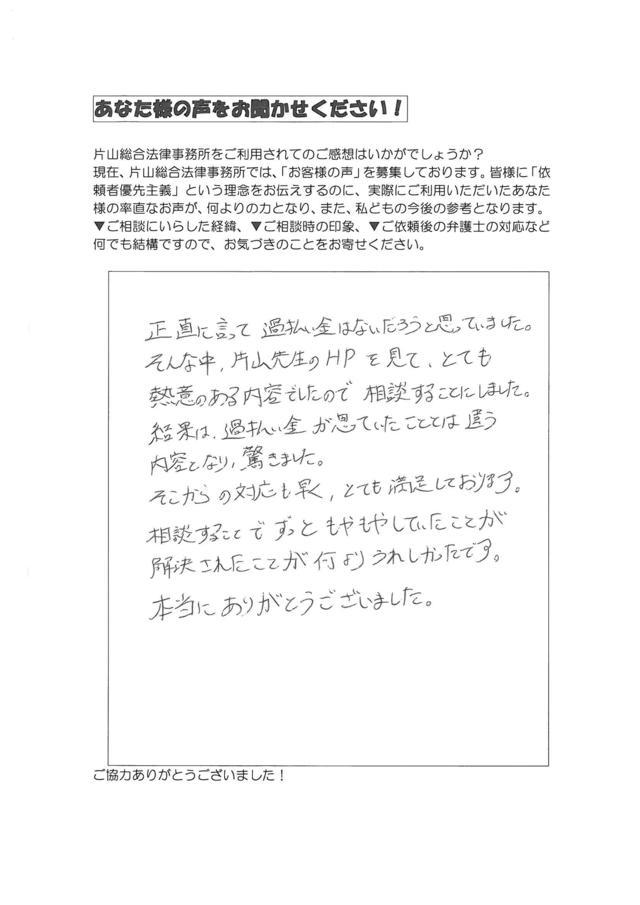 あなた様の声をお聞かせください！
片山総合法律事務所をご利用されてのご感想はいかがでしょうか？
現在、片山総合法律事務所では、「お客様の声」を募集しております。皆様に「依
頼者優先主義」という理念をお伝えするのに、実際にご利用いただいたあなた
様の率直なお声が、何よりの力となり、また、私どもの今後の参考となります。
▼ご相談にいらした経緯、▼ご相談時の印象、▼ご依頼後の弁護士の対応など
何でも結構ですので、お気づきのことをお寄せください。
正直に言って 過払い金はないだろうと思っていました。
そんな中、片山先生のHPを見て、とても
熱意のある内容でしたので 相談することにしました。
結果は、過払い金が思っていたこととは違う
内容となり、驚きました。
そこからの対応も早く、とても満足しております。
相談することで ずっともやもやしていたことが
解決されたことが何よりうれしかったです。
本当にありがとうございました。
ご協力ありがとうございました！